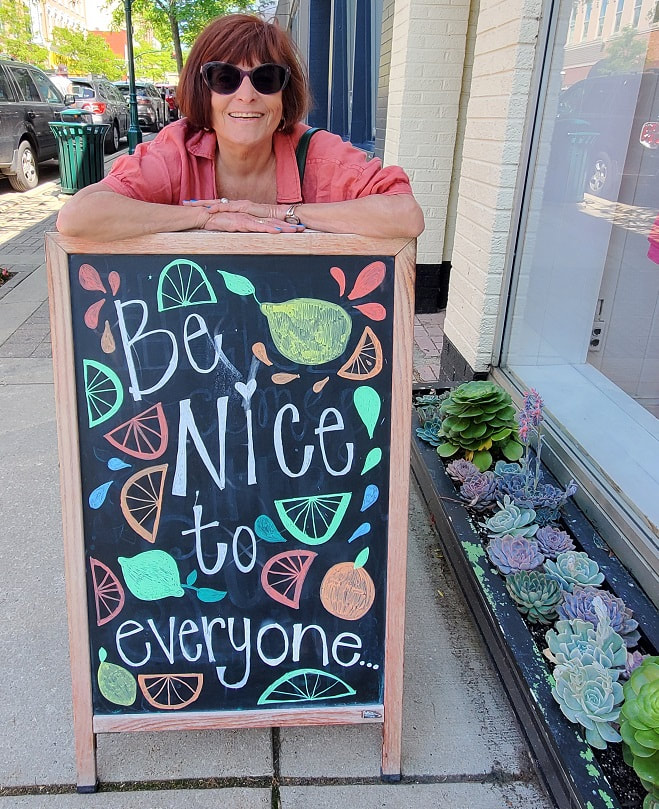 Be
Nice
to
everyone...